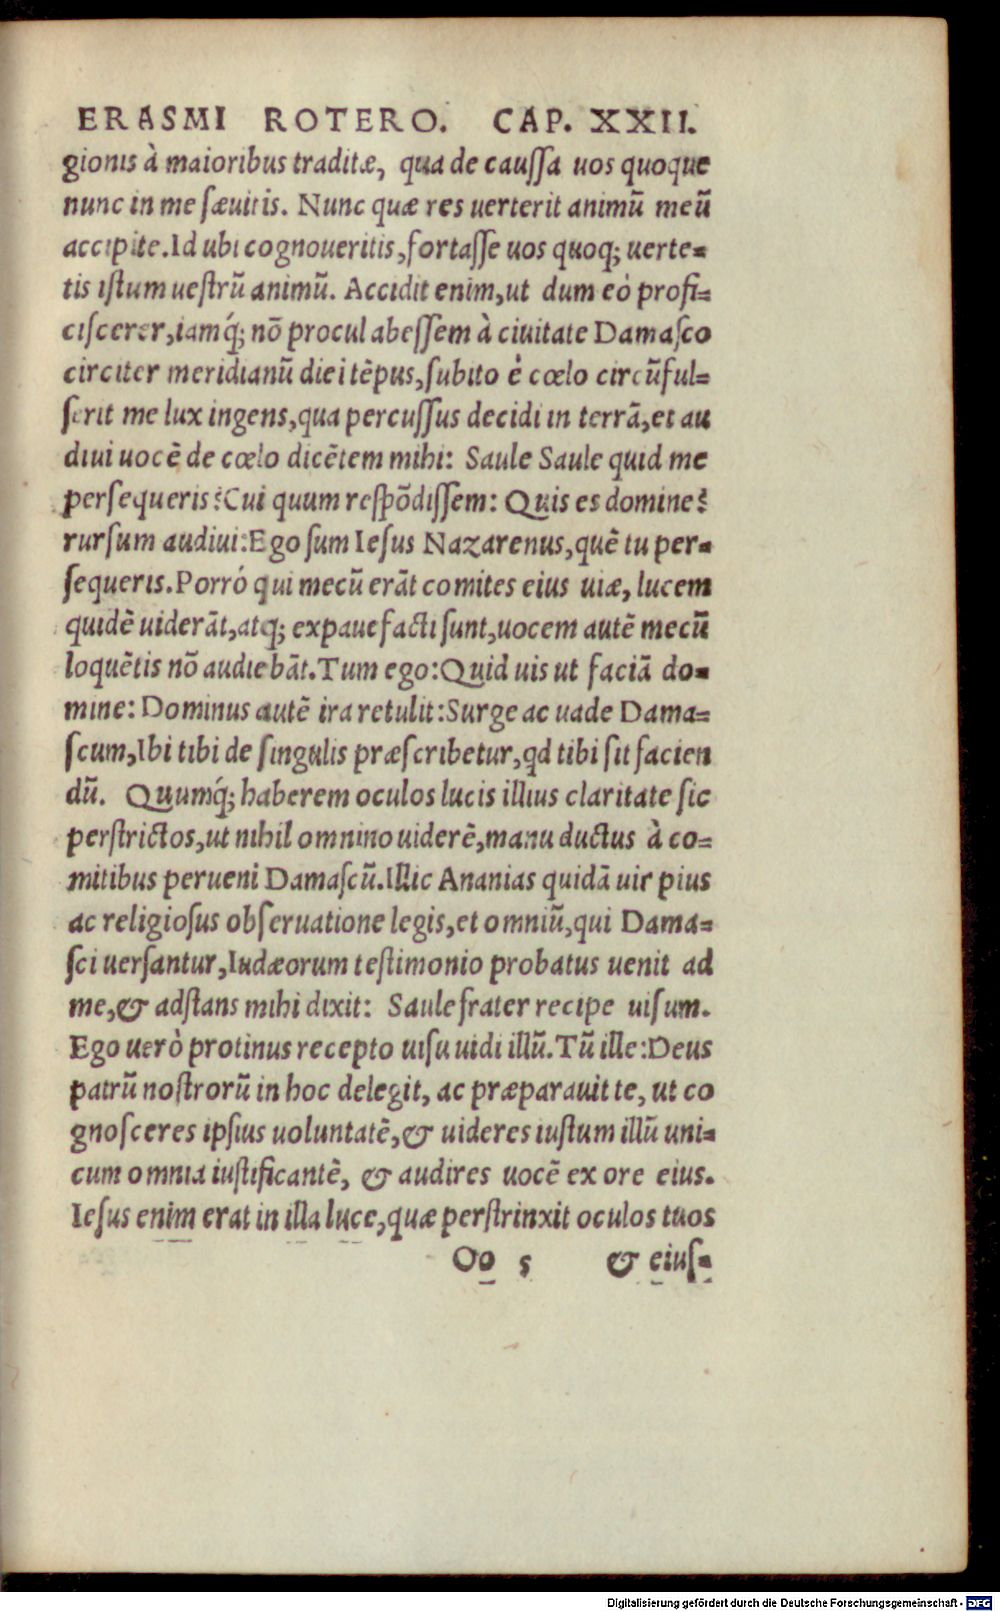 ERASMI ROTERO. CAP. XXII.
gionis à maioribus traditæ, qua de caussa uos quoque
nunc in me sæuitis. Nunc quæ res uerterit animū meū
accipite. Id ubi cognoueritis, fortasse uos quoq; uerte-
tis istum uestrū animū. Accidit enim, ut dum eò profi-
ciscerer, iamq́; nō procul abessem à ciuitate Damasco
circiter meridianū diei tēpus, subito è cœlo circūful-
serit me lux ingens, qua percussus decidi in terrā, et au
diui uocē de cœlo dicētem mihi: Saule Saule quid me
persequeris? Cui quum respōdissem: Quis es domine?
rursum audiui: Ego sum Iesus Nazarenus, quē tu per-
sequeris. Porró qui mecū erāt comites eius uiæ, lucem
quidē uiderāt, atq; expauefacti sunt, uocem autē mecū
loquētis nō audiebāt. Tum ego: Quid uis ut faciā do-
mine: Dominus autē ita retulit: Surge ac uade Dama-
scum, Ibi tibi de singulis præscribetur, qd tibi sit facien
dū. Quumq́; haberem oculos lucis illius claritate sic
perstrictos, ut nihil omnino uiderē, manu ductus à co-
mitibus perueni Damascū. Illic Ananias quidā uir pius
ac religiosus obseruatione legis, et omniū, qui Dama-
sci uersantur, Iudæorum testimonio probatus uenit ad
me, & adstans mihi dixit: Saule frater recipe uisum.
Ego uerò protinus recepto uisu uidi illū. Tū ille: Deus
patrū nostrorū in hoc delegit, ac præparauit te, ut co
gnosceres ipsius uoluntatē, & uideres iustum illū uni-
cum omnia iustificantē, & audires uocē ex ore eius.
Iesus enim erat in illa luce, quæ perstrinxit oculos tuos
Oo 5 & eius-
Digitalisierung gefördert durch die Deutsche Forschungsgemeinschaft - DFG